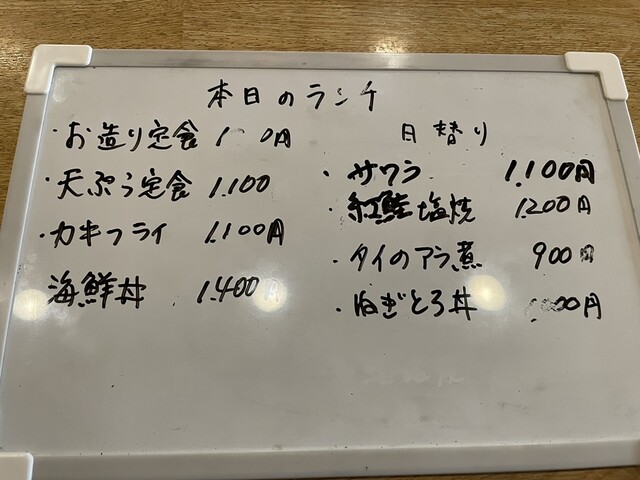 本日のランチ
・お造り定食
・天ぷら定食 1,100
・カキフライ 1,100円
海鮮丼 1,400円
日替り
・サワラ 1,100円
・紅鮭塩焼 1,200円
・タイのアラ煮 900円
・ねぎとろ丼